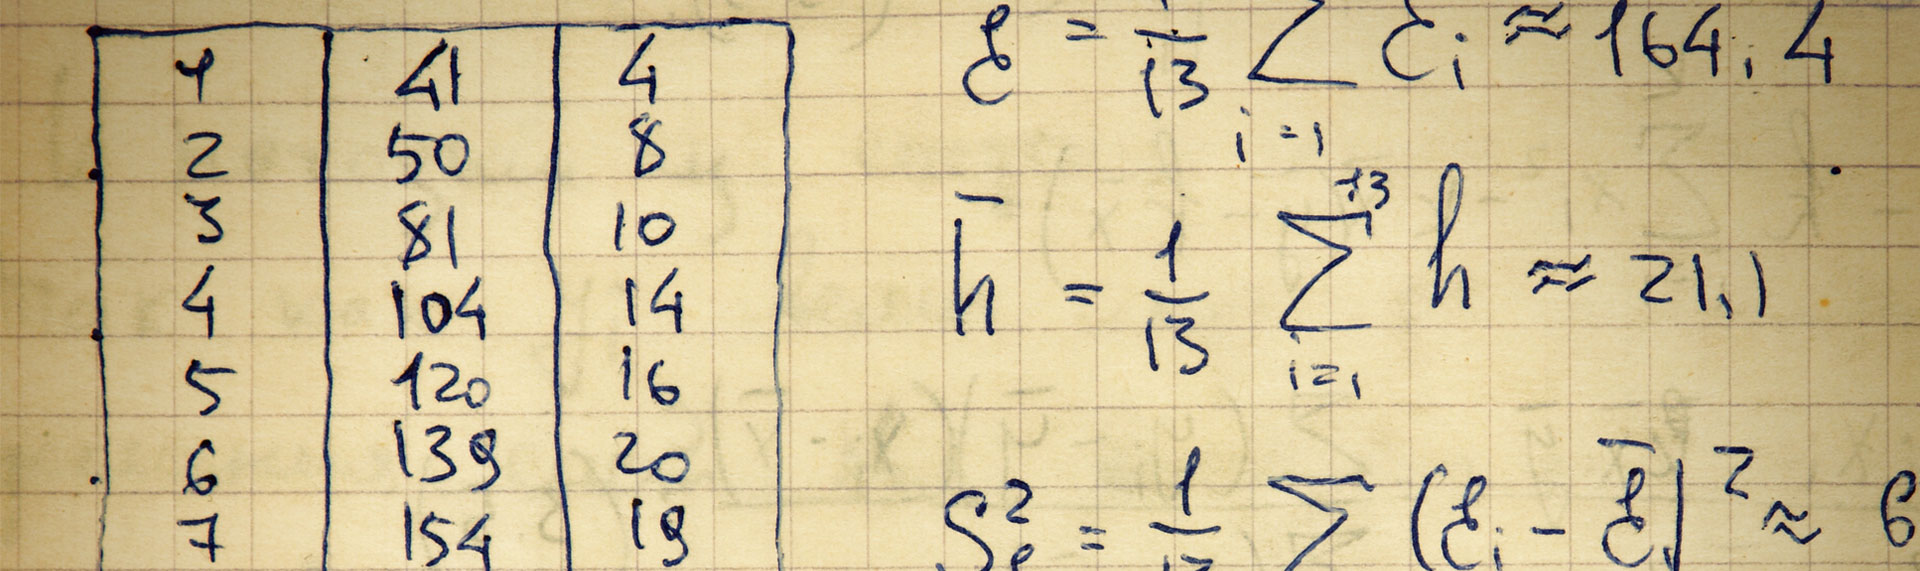 1 41 4
2 50 8
3 81 10
4 104 14
5 120 16
6 139 20
7 154 19
ε = 1/13 ∑ i=1 ε i ≈ 164,4
h̄ = 1/13 13 ∑ i=1 h ≈ 21,1
S² = 1 ∑ (ε i - ε̄)² ≈ 6